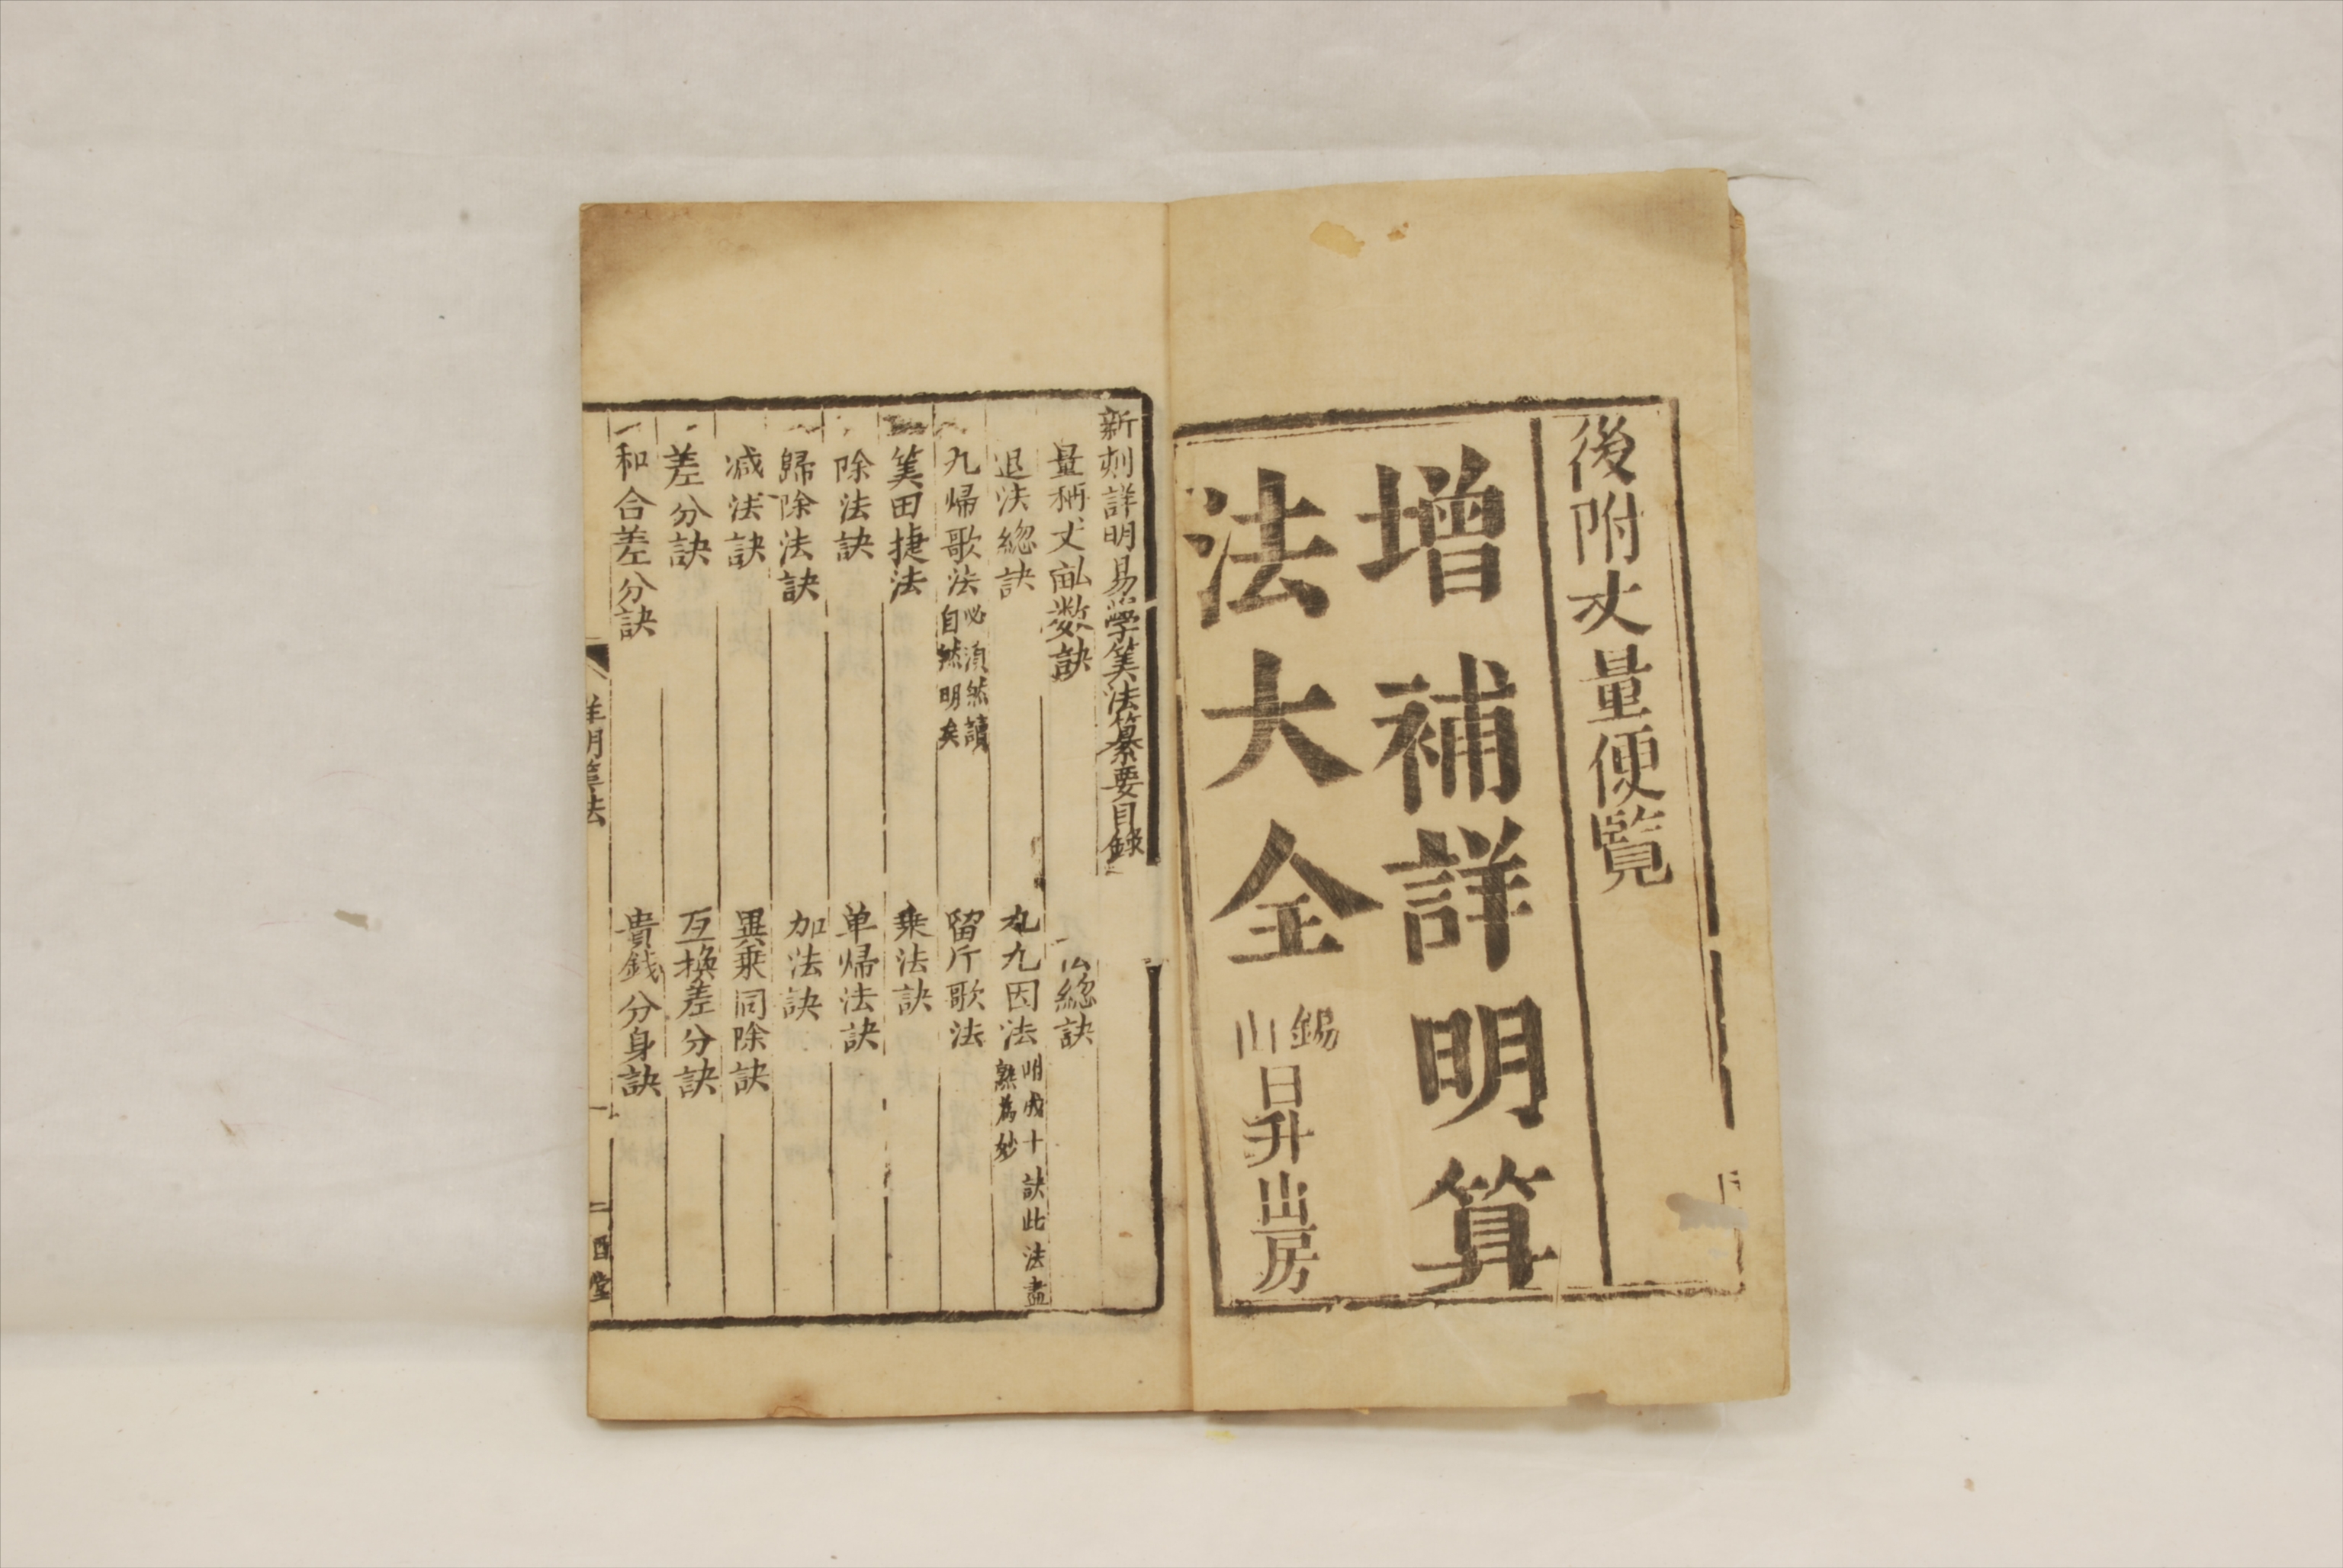 後附丈量便覽
增補詳明算
法大全
錫山日升山房
新刻詳明易學筭法纂要目錄
量柄丈畆数訣
総訣
退法総訣
九九因法
明成十訣此法盡
熟為妙
九帰歌法
必須然讀
自然明矣
留斤歌法
筭田捷法
乗法訣
除法訣
单帰法訣
歸除法訣
加法訣
减法訣
異乗同除訣
差分訣
互換差分訣
和合差分訣
貴錢分身訣
詳明筭法
一
二酉堂